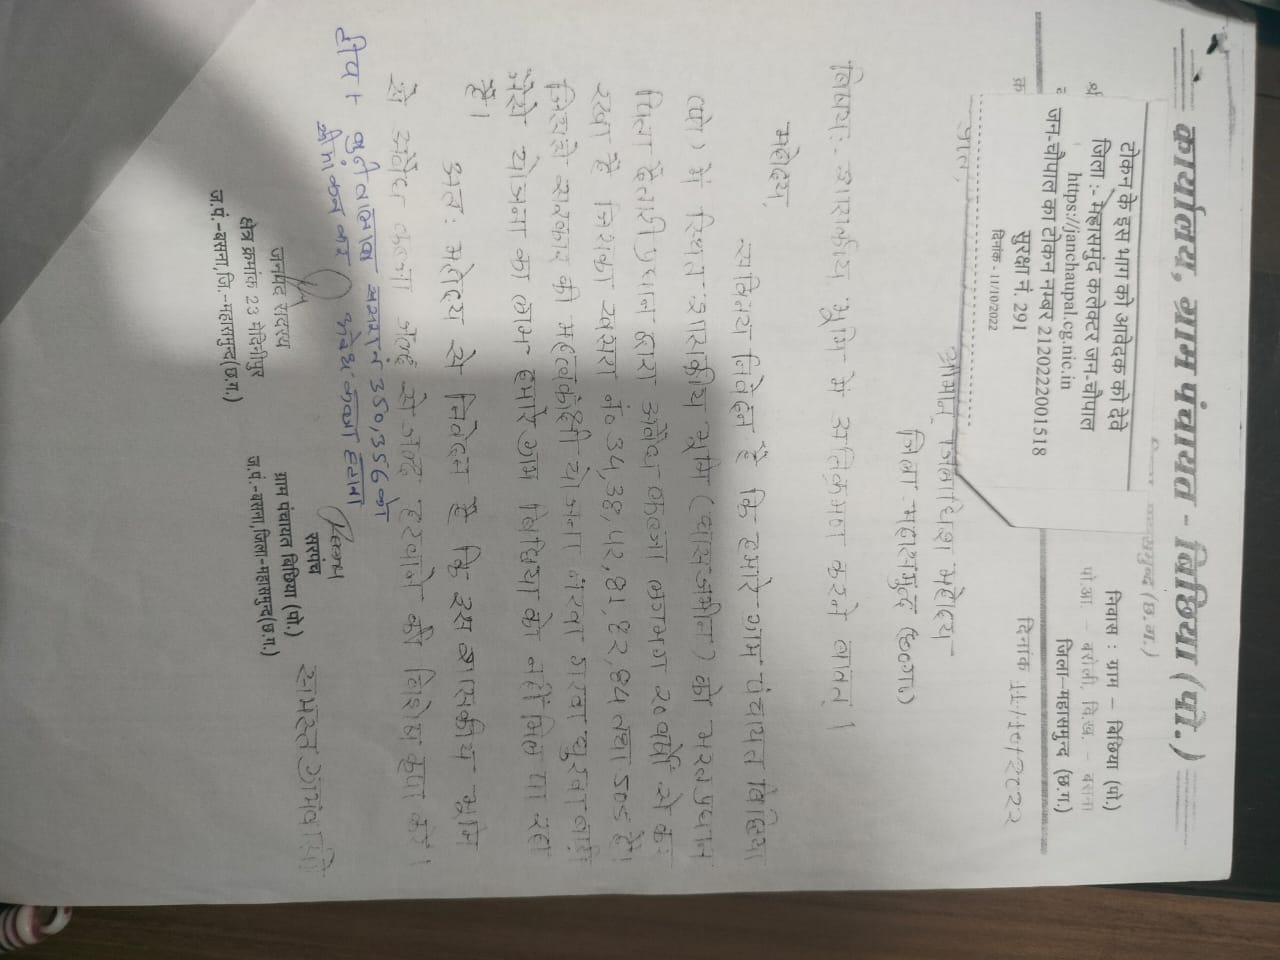 कार्यालय, ग्राम पंचायत - बिछिया (पो.)
निवास : ग्राम - बिछिया (पो.)
पो.आ. - बरोली, वि.ख. - बसना
जिला-महासमुन्द (छ.ग.)
टोकन के इस भाग को आवेदक को देवे
जिला :- महासमुंद कलेक्टर जन-चौपाल
https://janchaupal.cg.nic.in
जन-चौपाल का टोकन नम्बर 2120222001518
सुरक्षा नं. 291
दिनांक - 11/10/2022
दिनांक 11/10/2022
प्रति,
श्रीमान् जिलाधिश महोदय
जिला महासमुन्द (छ०ग०)
विषय:- शासकीय भूमि में अतिक्रमण करने बाबत् ।
महोदय,
सविनय निवेदन है कि हमारे ग्राम पंचायत बिछिया
(पो) में स्थित शासकीय भूमि (घास जमीन) को भरत प्रधान
पिता द्वारा अवैध कब्जा लगभग 20 वर्षों से कर
रखा है जिसका खसरा नं० 34,38,42,81,82,84 तथा 505 है।
जिससे सरकार की महत्वकांक्षी योजना नरवा गरवा घुरवा बाड़ी
जैसे योजना का लाभ हमारे ग्राम बिछिया को नहीं मिल पा रहा
है।
अत: महोदय से निवेदन है कि इस शासकीय भूमि
से अवैध कब्जा जल्द से जल्द हटवाने की निर्देश कृपा करें।
350,356 को
कब्जा हटाना
जनपद सदस्य
क्षेत्र क्रमांक 23 मेदिनीपुर
ज.पं.-बसना,जि.-महासमुन्द(छ.ग.)
सरपंच
ग्राम पंचायत बिछिया (पो.)
ज.पं.-बसना,जिला-महासमुन्द(छ.ग.)
समस्त ग्रामवासी